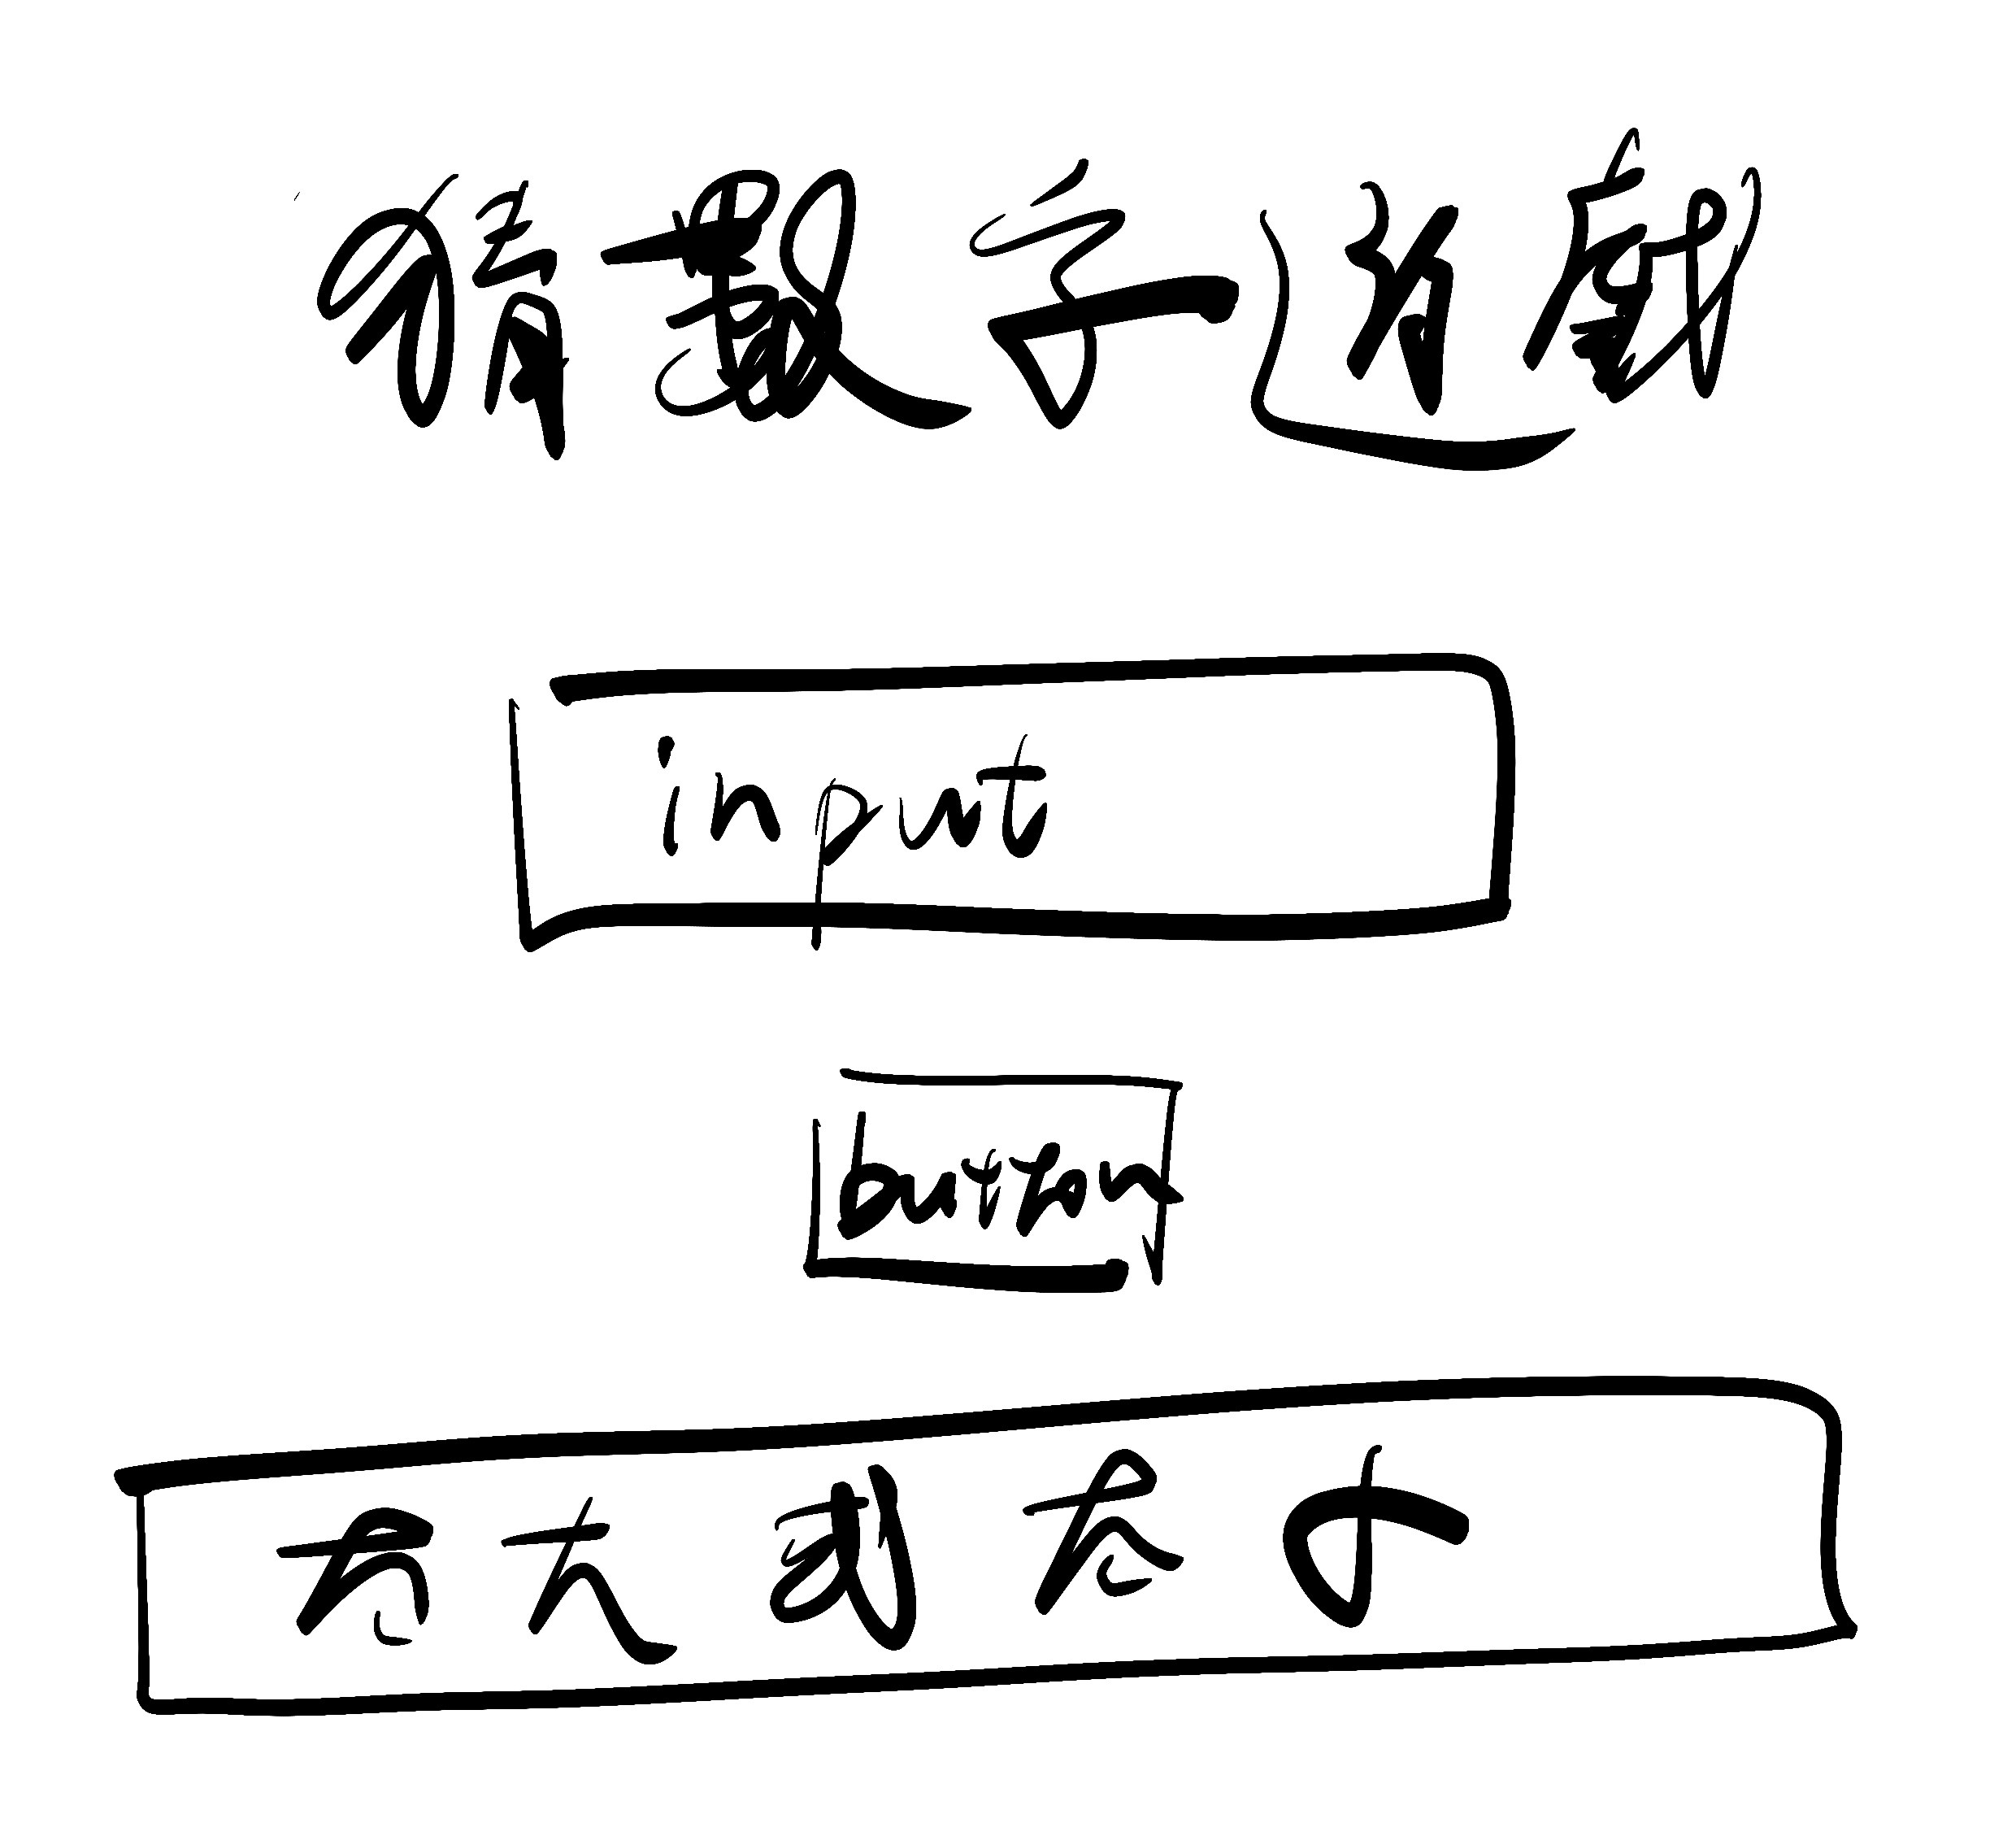 猜數字遊戲
input
button
有大到太小